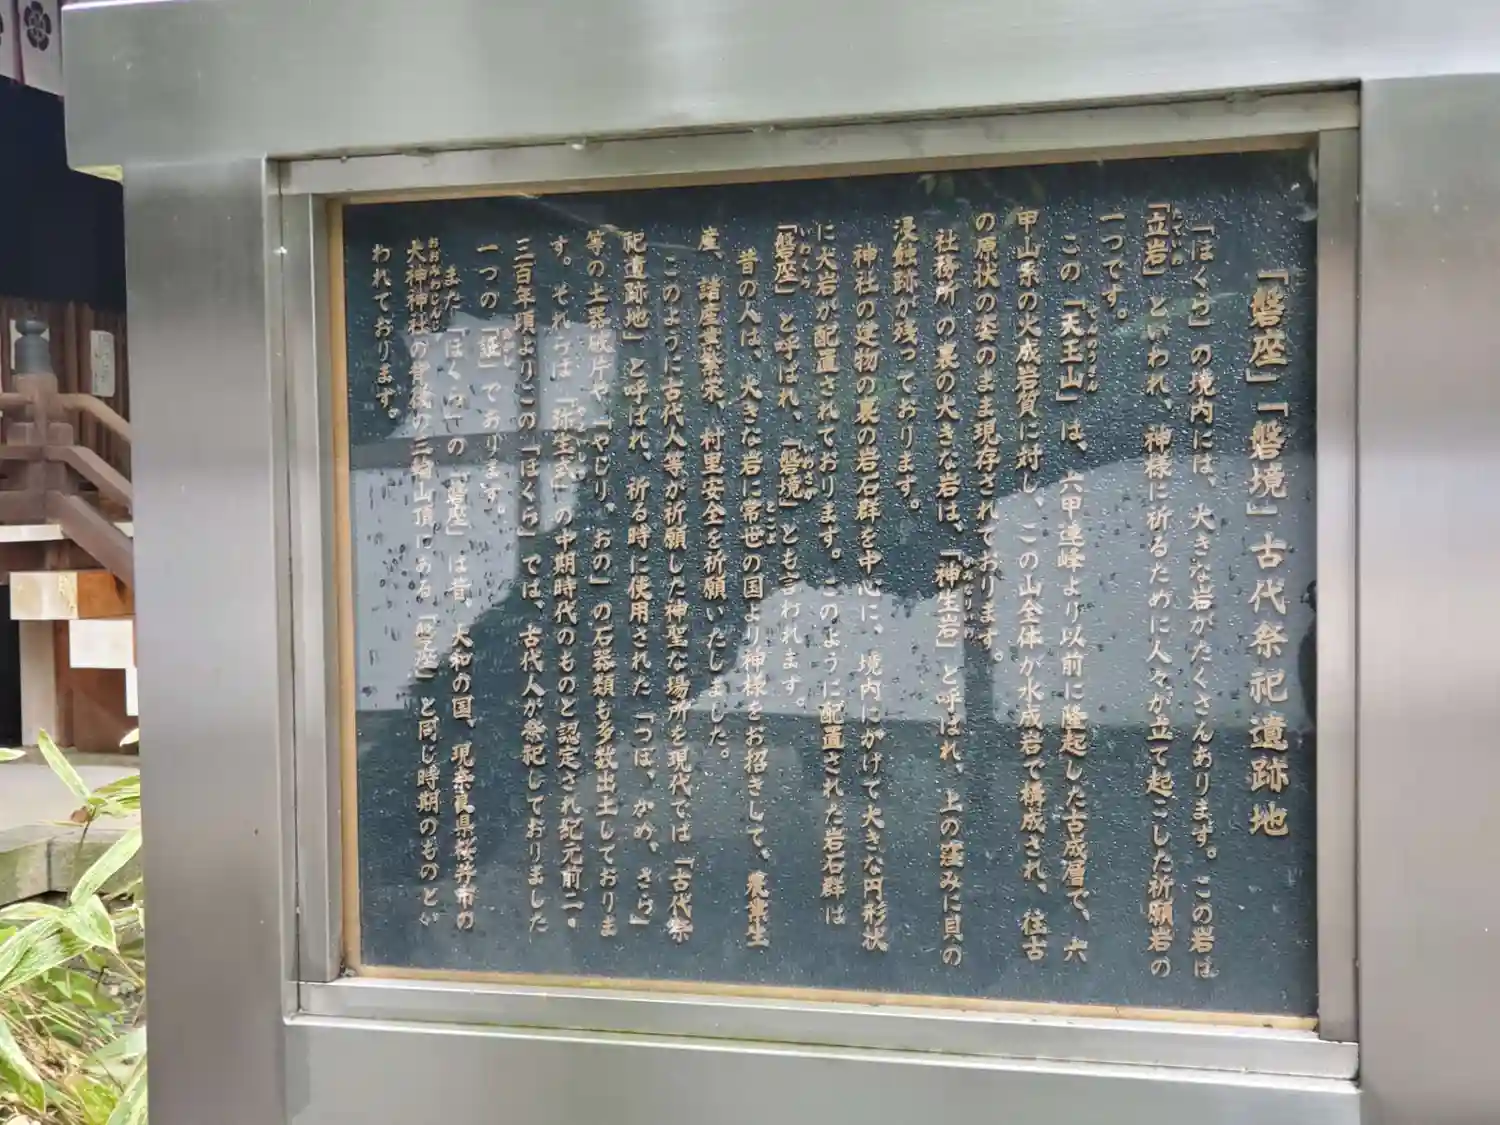 「磐座」「磐境」古代祭祀遺跡地
「ほくら」の境内には、大きな岩がたくさんあります。この岩は
「立岩」といわれ、神様に祈るために人々が立て起こした祈願岩の
一つです。
この「天王山」は、六甲連峰より以前に隆起した古成層で、六
甲山系の火成岩質に対し、この山全体が水成岩で構成され、往古
の原状の姿のまま現存されております。
社務所の裏の大きな岩は、「神生岩」と呼ばれ、上の窪みに貝の
浸蝕跡が残っております。
神社の建物の裏の岩石群を中心に、境内にかけて大きな円形状
に大岩が配置されております。このように配置された岩石群は
「磐座」と呼ばれ、「磐境」とも言われます。
昔の人は、大きな岩に常世の国より神様をお招きして、農事生
産、諸産業繁栄、村里安全を祈願いたしました。
このように古代人等が祈願した神聖な場所を現代では「古代祭
祀遺跡地」と呼ばれ、祈る時に使用された「つぼ、かめ、さら」
等の土器破片や「やじり、おの」の石器類も多数出土しておりま
す。それらは「弥生式」の中期時代のものと認定され紀元前二・
三百年頃よりこの「ほくら」では、古代人が祭祀しておりました
一つの「証」であります。
また「ほくら」の「磐座」は昔、大和の国、現奈良県桜井市の
大神神社の背後の三輪山頂にある「磐座」と同じ時期のものとい
われております。